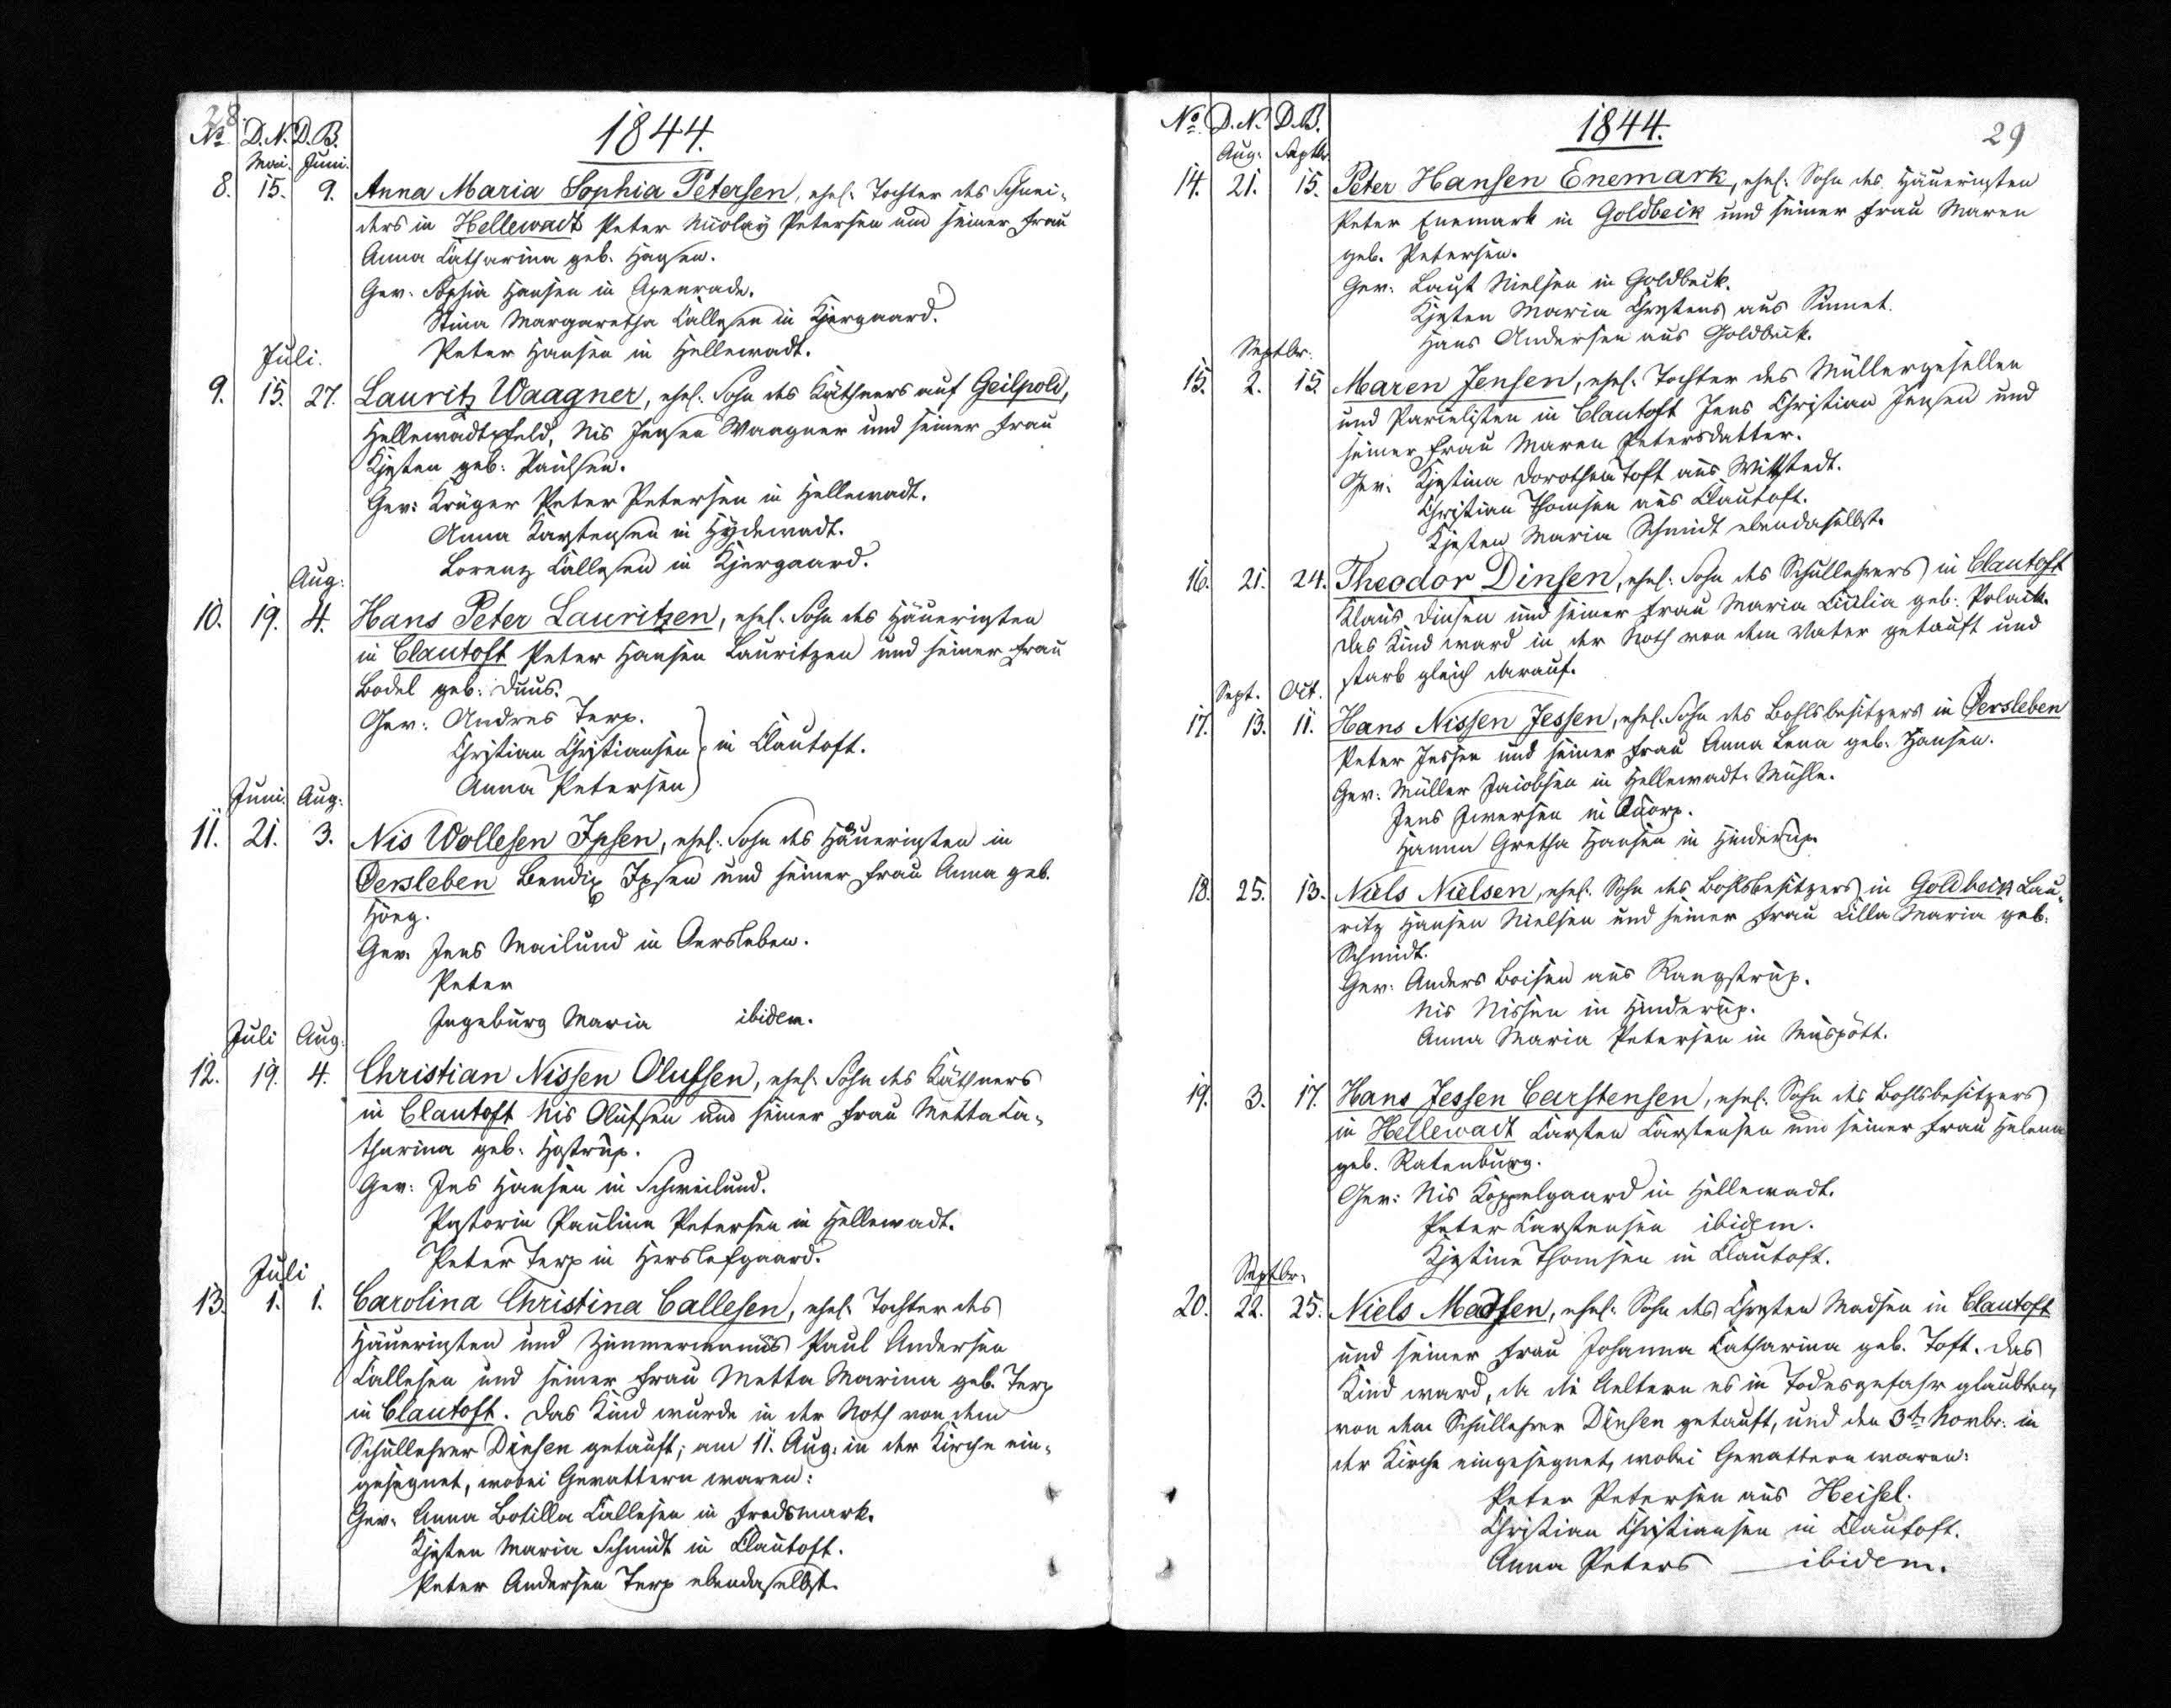 28.
No D.N. D.B.
1844.
Mai. Juni.
8. 15. 9. Anna Maria Sophia Petersen, ehel. Tochter des Schnei-
ders in Hellewadt Peter Nicolay Petersen und seiner Frau
Anna Catharina geb. Hansen.
Gev. Sophia Hansen in Apenrade.
Stina Margaretha Callesen in Kjergaard.
Peter Hansen in Hellewadt.
Juli.
9. 15. 27. Lauritz Waagner, ehel. Sohn des Käthners auf Geilpold,
Hellewadtfeld, Nis Jensen Waagner und seiner Frau
Kjesten geb. Paulsen.
Gev: Krüger Peter Petersen in Hellewadt.
Anna Karstensen in Hydewadt.
Lorenz Callesen in Kjergaard.
Aug:
10. 19. 4. Hans Peter Lauritzen, ehel. Sohn des Häuerigten
in Clautoft Peter Hansen Lauritzen und seiner Frau
Bodel geb. Duus.
Gev: Andres Terp.
Christian Christiansen in Clautoft.
Anna Petersen
Juni. Aug:
11. 21. 3. Nis Wollesen Ipsen, ehel. Sohn des Häuerigten in
Oersleben Bendix Ipsen und seiner Frau Anna geb.
Höeg.
Gev. Jens Mailund in Oersleben.
Peter
Ingeburg Maria ibidem.
Juli Aug:
12. 19. 4. Christian Nissen Olufsen, ehel. Sohn des Käthners
in Clautoft Nis Olufsen und seiner Frau Metta Ca-
tharina geb. Hostrup.
Gev: Jes Hansen in Schweilund.
Pastorin Paulina Petersen in Hellewadt.
Peter Terp in Herslefgaard.
Juli
13. 1. 1. Carolina Christina Callesen, ehel. Tochter des
Häuerigten und Zimmermanns Paul Andersen
Callesen und seiner Frau Metta Marina geb. Terp
in Clautoft. Das Kind wurde in der Noth von dem
Schullehrer Dinsen getauft; am 11. Aug. in der Kirche ein-
gesegnet, wobei Gevattern waren:
Gev. Anna Botilla Callesen in Fredsmark.
Kjesten Maria Schmidt in Clautoft.
Peter Andersen Terp ebendaselbst.
No D.N. D.B.
1844.
29
Aug: Septbr.
14. 21. 15. Peter Hansen Enemark, ehel. Sohn des Häuerigten
Peter Enemark in Goldbeck und seiner Frau Maren
geb. Petersen.
Gev: Laust Nielsen in Goldbeck.
Kjesten Maria Christens aus Sinnet.
Hans Andersen aus Goldbeck.
Septbr.
15. 2. 15. Maren Jensen, ehel. Tochter des Müllergesellen
und Parcelisten in Clautoft Jens Christian Jensen und
seiner Frau Maren Petersdatter.
Gev. Kjestina Dorothea Toft aus Wittstedt.
Christian Thomsen aus Clautoft.
Kjesten Maria Schmidt ebendaselbst.
16. 21. 24. Theodor Dinsen, ehel. Sohn des Schullehrers in Clautoft
Klaus Dinsen und seiner Frau Maria Cicilia geb. Polack.
Das Kind ward in der Noth von dem Vater getauft und
starb gleich darauf.
Sept. Oct.
17. 13. 11. Hans Nissen Jessen, ehel. Sohn des Bohlsbesitzers in Oersleben
Peter Jessen und seiner Frau Anna Lena geb. Hansen.
Gev: Müller Jacobsen in Hellewadt-Mühle.
Jens Iwersen in Quorp.
Hanna Gretha Hansen in Hinderup.
18. 25. 13. Niels Nielsen, ehel. Sohn des Bohlsbesitzers in Goldbeck Lau-
ritz Hansen Nielsen und seiner Frau Cilla Maria geb.
Schmidt.
Gev: Anders Boisen aus Rangstrup.
Nis Nissen in Hinderup.
Anna Maria Petersen in Muspött.
19. 3. 17. Hans Jessen Carstensen, ehel. Sohn des Bohlsbesitzers
in Hellewadt Carsten Carstensen und seiner Frau Helena
geb. Ratenburg.
Gev: Nis Koppelgaard in Hellewadt.
Peter Carstensen ibidem.
Kjestine Thomsen in Clautoft.
Septbr.
20. 22. 25. Niels Madsen, ehel. Sohn des Christen Madsen in Clautoft
und seiner Frau Johanna Catharina geb. Toft. Das
Kind ward, da die Aeltern es in Todesgefahr glaubten,
von dem Schullehrer Dinsen getauft, und den 3t. Novbr. in
der Kirche eingesegnet, wobei Gevattern waren:
Peter Petersen aus Heisel.
Christian Christiansen in Clautoft.
Anna Peters — ibidem.